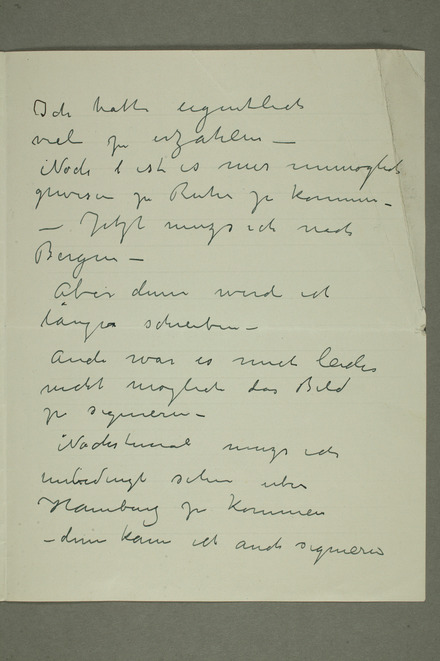 Ich hatte eigentlich
viel zu erzählen —
Noch ist es mir unmöglich
gewesen zu Ruhe zu kommen —
— Jetzt muss ich nach
Bergen —
Aber dann werd ich
länger schreiben —
Auch war es mich leider
nicht möglich das Bild
zu signieren —
Nächstemal muss ich
unbedingt schon über
Hamburg zu kommen
— dann kann ich auch signieren